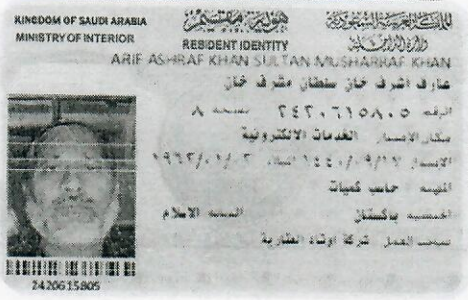 KINGDOM OF SAUDI ARABIA
MINISTRY OF INTERIOR
هوية مقيم
RESIDENT IDENTITY
المملكة العربية السعودية
وزارة الداخلية
ARIF ASHRAF KHAN SULTAN MUSHARRAF KHAN
عارف اشرف خان سلطان مشرف خان
الرقم ٢٤٢٠٦١٥٨٠٥ نسخة ٨
مكان الاصدار الخدمات الالكترونية
الاصدار ١٤٤٠/٠٩/١٧ الميلاد
المهنة حاسب كميات
الجنسية باكستان الديانة الاسلام
صاحب العمل شركة اوتاد العقارية
2420615805